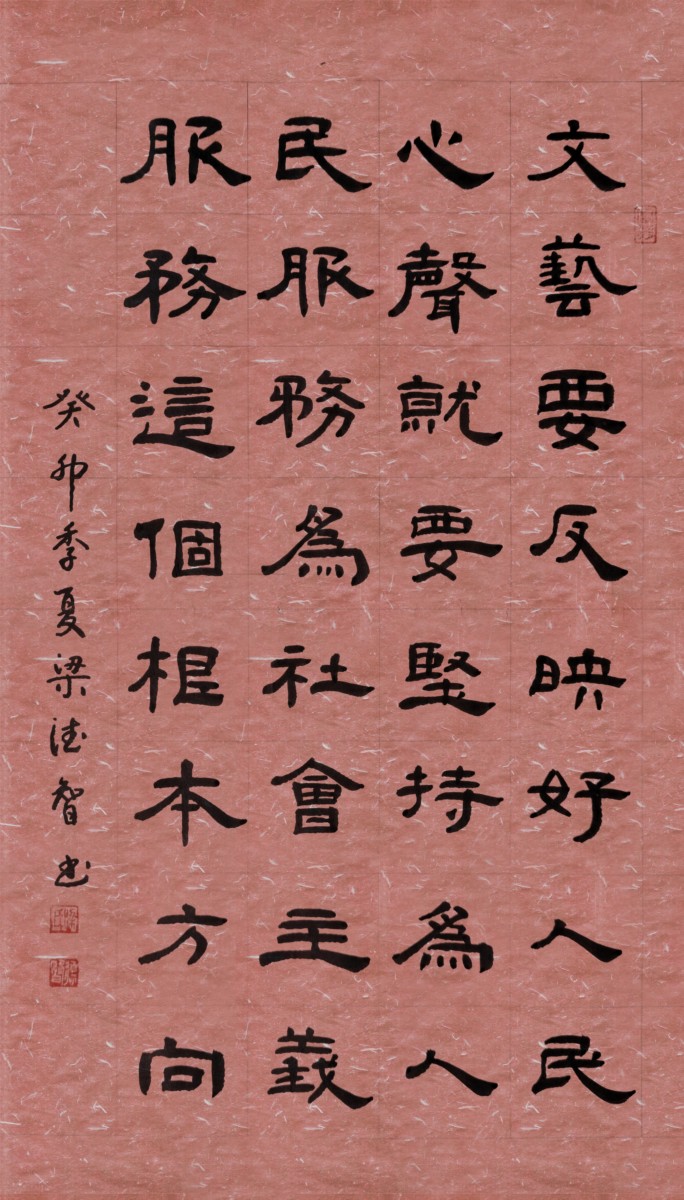 文藝要反映好人民
心聲就要堅持為人
民服務為社會主義
服務這個根本方向
癸卯季夏梁德智书